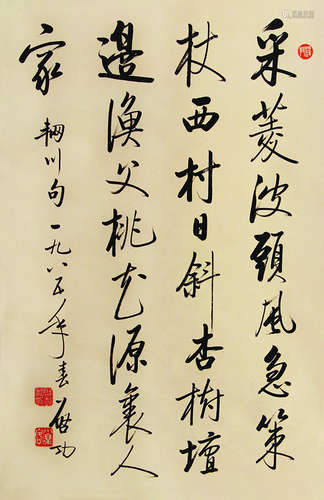 采菱波頭風急策
杖西村日斜杏樹壇
邊漁父桃花源裏人
家
輞川句 一九八五年春 啟功